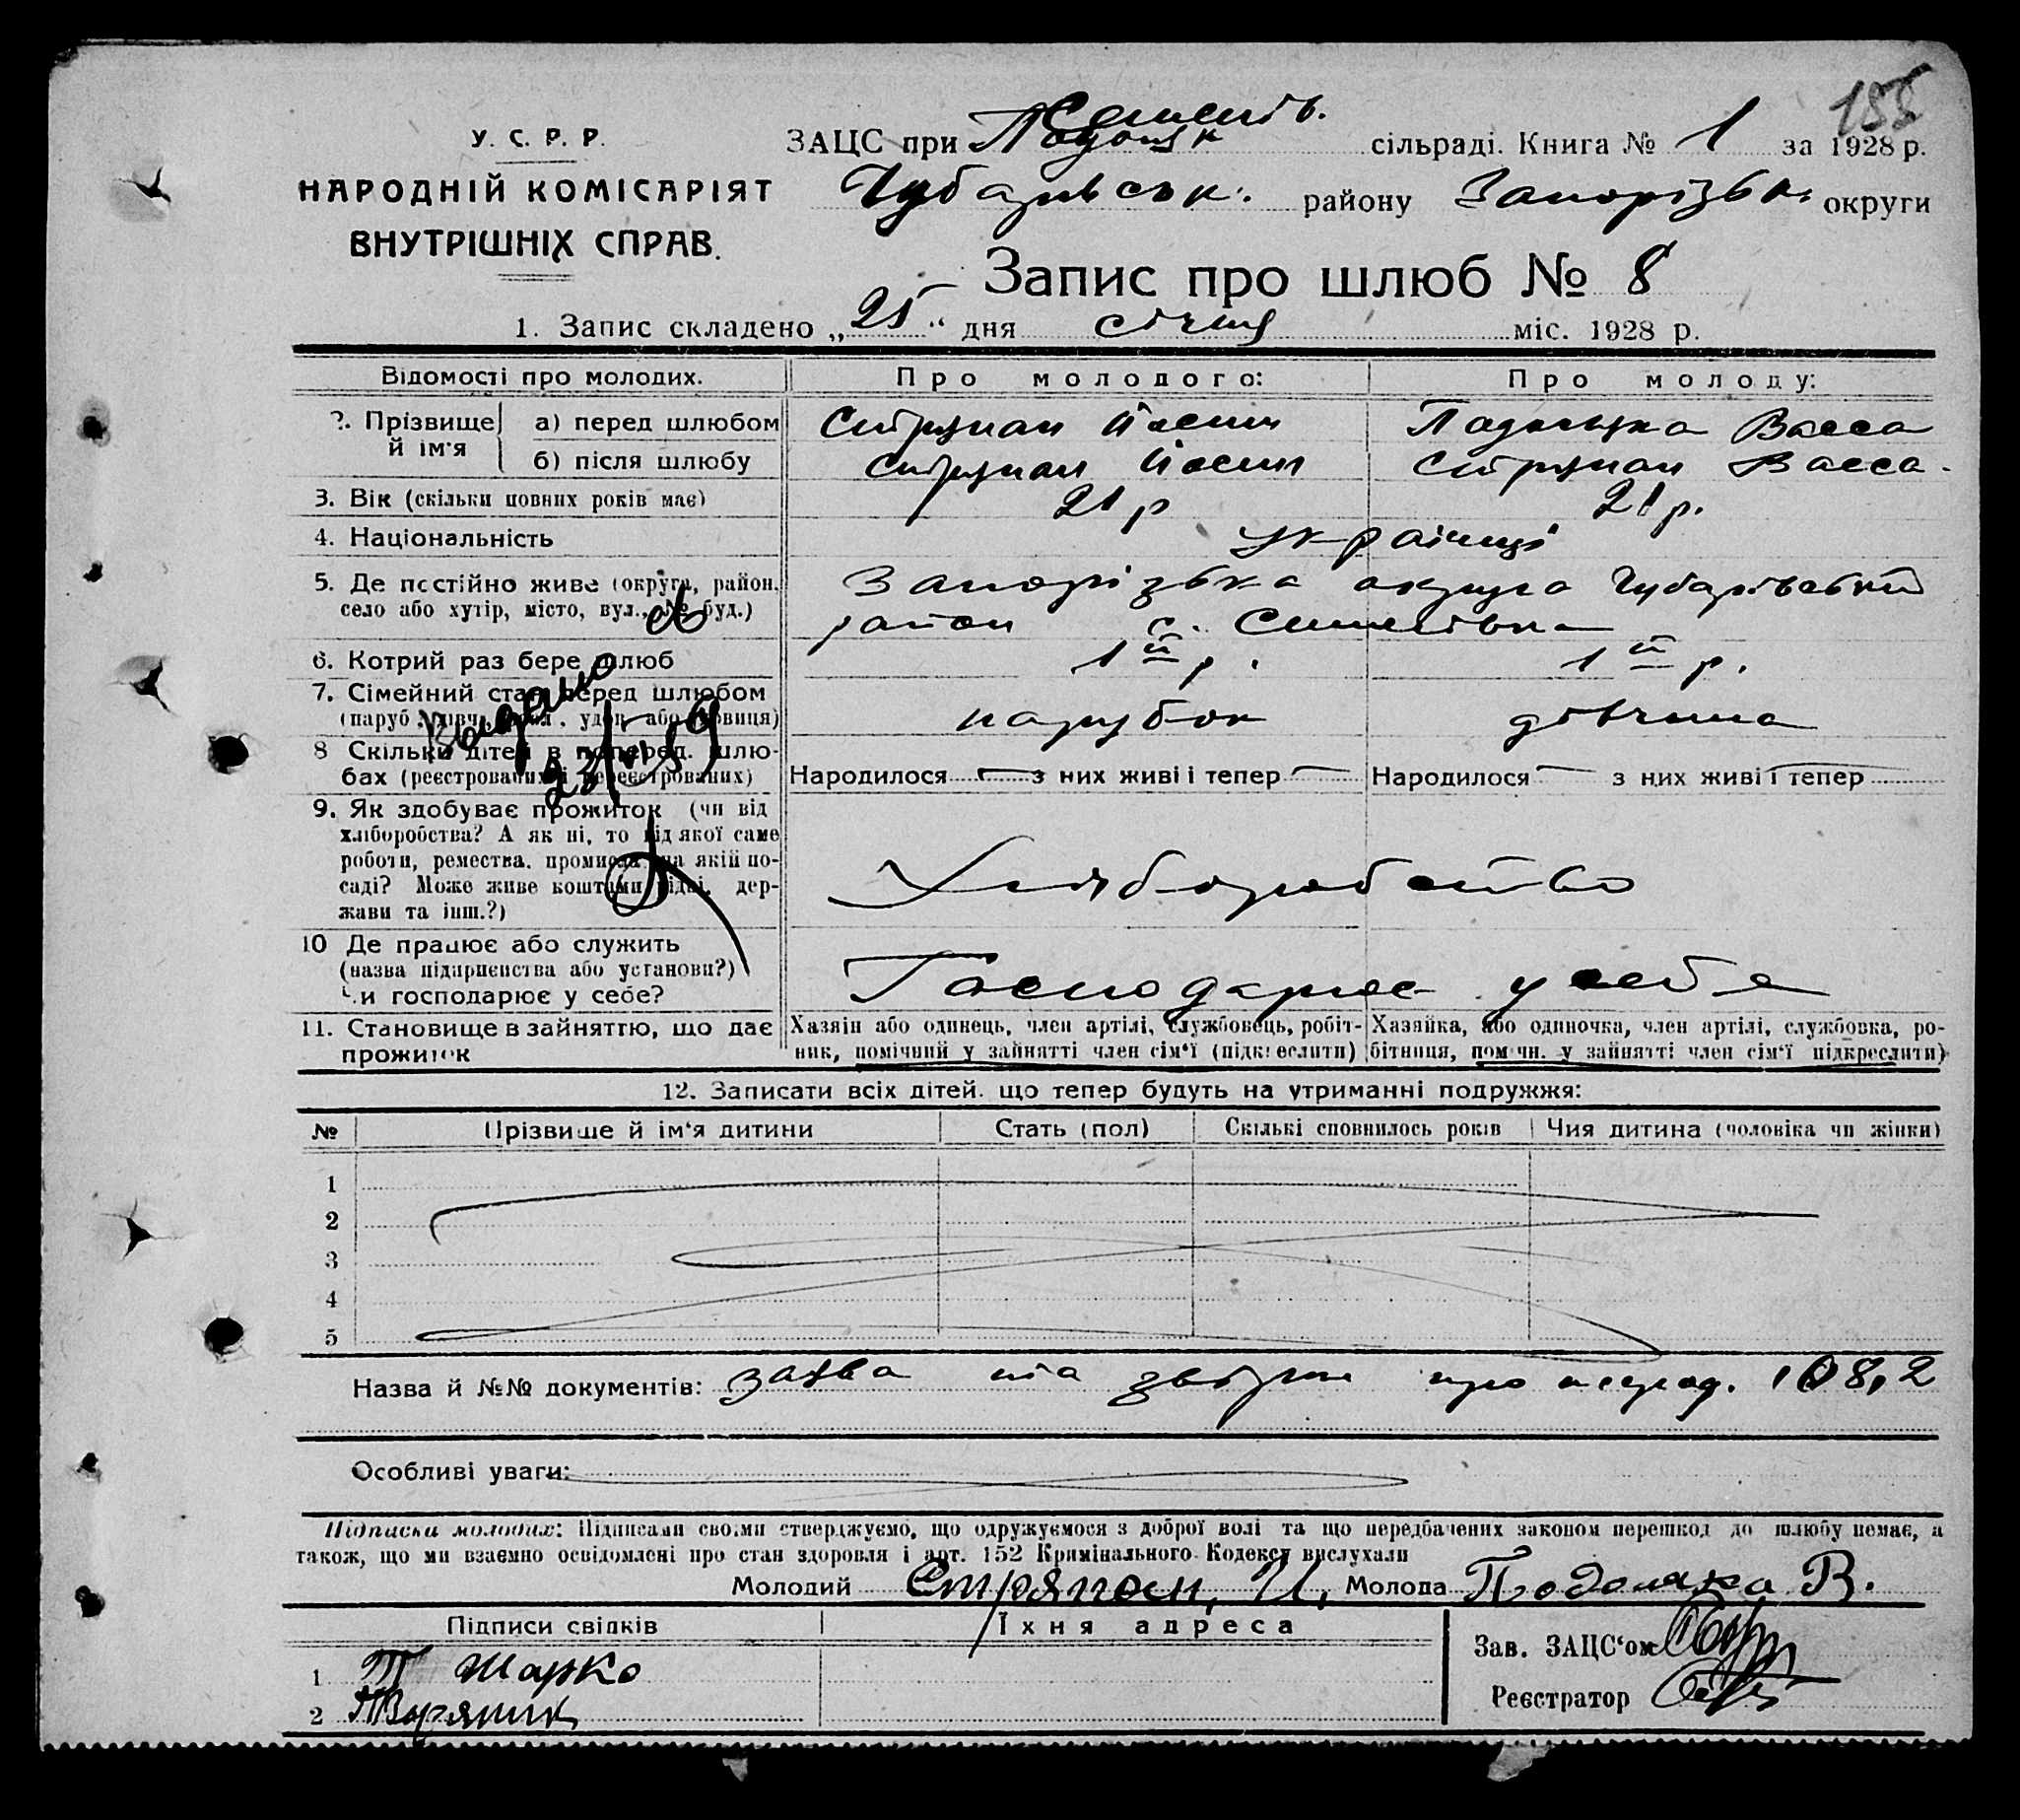 155
У. С. Р. Р.
НАРОДНІЙ КОМІСАРІЯТ
ВНУТРІШНІХ СПРАВ.
ЗАЦС при сільраді. Книга № 1 за 1928 р.
Чубарівськ. району Запорізьк. округи
Запис про шлюб № 8
1. Запис складено „25“ дня січня міс. 1928 р.
Відомості про молодих. Про молодого: Про молоду:
2. Прізвище й ім'я
а) перед шлюбом Йосип Васса
б) після шлюбу Йосип Васса
3. Вік (скільки повних років має) 21 р 21 р.
4. Національність українці
5. Де постійно живе (округа, район, Запорізька округа Чубарівський
село або хутір, місто, вул., № буд.) район с.
6. Котрий раз бере шлюб 1й р. 1й р.
7. Сімейний стан перед шлюбом
(паруб., дівч., удов. або удовиця) парубок дівчина
Видано
8 Скільки дітей в поперед. шлю-
бах (реєстрованих і нереєстрованих) Народилося — з них живі і тепер — Народилося — з них живі і тепер —
9. Як здобуває прожиток (чи від
хліборобства? А як ні, то від якої саме
роботи, ремества, промисла, на якій по-
саді? Може живе коштами рідні, дер-
жави та інш.?) Хліборобство
10 Де працює або служить
(назва підприємства або установи?)
Чи господарює у себе? Господарює у себе
11. Становище в зайняттю, що дає прожиток
Хазяїн або одинець, член артілі, службовець, робіт-
ник, помічний у зайнятті член сім'ї (підкреслити)
Хазяйка, або одиночка, член артілі, службовка, ро-
бітниця, помічн. у зайнятті член сім'ї підкреслити)
12. Записати всіх дітей, що тепер будуть на утриманні подружжя:
№ Прізвище й ім'я дитини Стать (пол) Скількі сповнилось років Чия дитина (чоловіка чи жінки)
1
2
3
4
5
Назва й №№ документів: заява та про 108,2
Особливі уваги:
Підписи молодих: Підписами своїми стверджуємо, що одружуємося з доброї волі та що передбачених законом перешкод до шлюбу немає, а
також, що ми взаємно освідомлені про стан здоровля і арт. 152 Кримінального Кодексу вислухали
Молодий Стряпан, И, Молода Подоляка В.
Підписи свідків Їхня адреса
1 Т Шарко
2
Зав. ЗАЦС'ом
Реєстратор